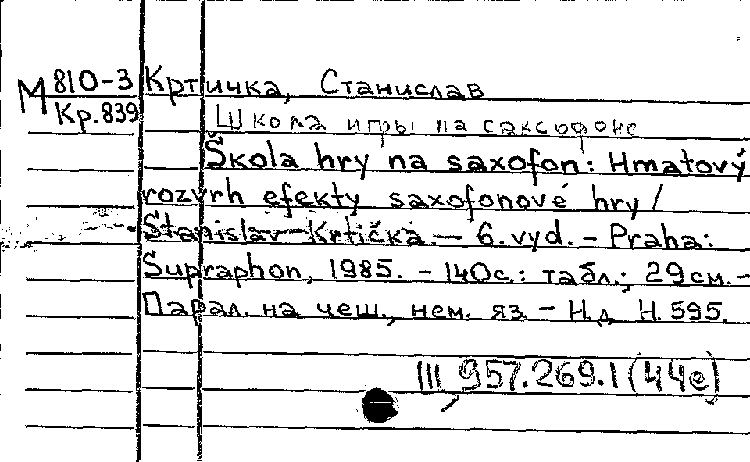 М 810-3 Кртичка, Станислав
Кр.839
Школа игры на саксофоне
Škola hry na saxofon: Hmatový
rozvrh efekty saxofonové hry /
Stanislav Krtička. – 6. vyd. – Praha:
Supraphon, 1985. – 140с.: табл.; 29см. –
Парал. на чеш., нем. яз. – Н.д. H 595.
III 957.269.1 (44е)